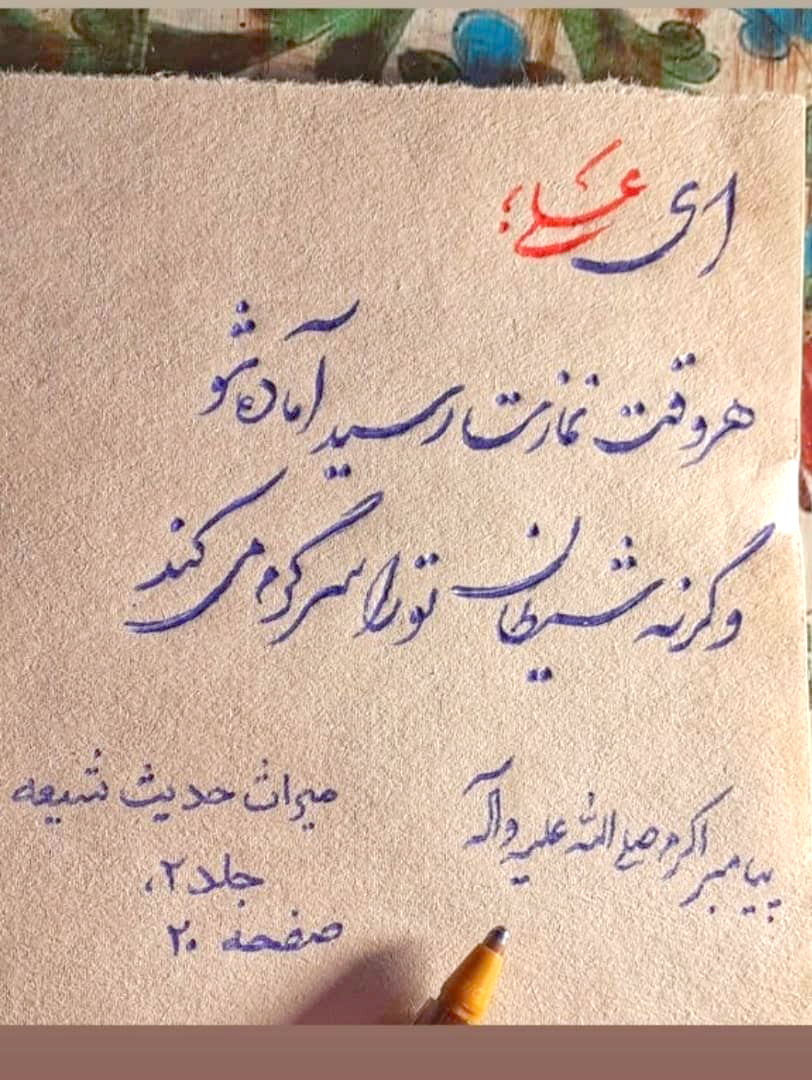 ای علی؛
هر وقت نمازت رسید آماده شو
وگرنه شیطان تو را سرگرم می کند
پیامبر اکرم صلی الله علیه وآله
میراث حدیث شیعه
جلد ۲،
صفحه ۲۰